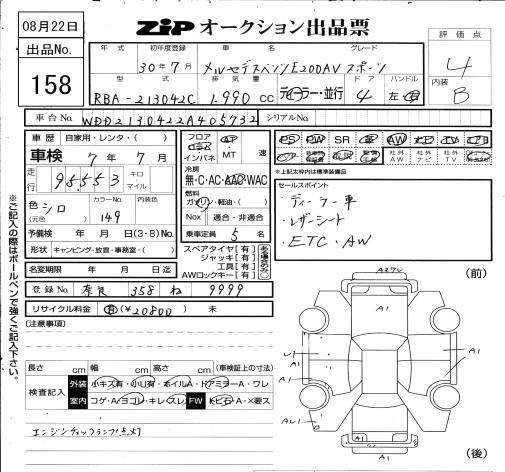 08月22日
出品No.
158
ZIP オークション出品票
評価点
4
内装
B
年式 初年度登録 車名 グレード
30年7月 メルセデスベンツE200AV スポーツ
型式 排気量 ドア ハンドル
RBA-213042C 1.990 cc ディーラー・並行 4 左・右
車台No. WDD2130422A405732 シリアルNo.
車歴 自家用・レンタ・( )
車検 7年7月
走行 95553 キロ マイル
色 シロ (元色) カラーNo. 149 内装色
予備検 年 月 日(3・8)No.
形状 キャンピング・放宣・事務室・( )
名変期限 年 月 日迄
フロア コラム インパネ AT MT 速
冷房
無・C・AC・AAC・WAC
燃料
ガソリン・軽油・( )
NOx 適合・非適合
乗車定員 5 名
スペアタイヤ【有】
ジャッキ【有】
工具【有】
AWロックキー【有】
PS PW SR 革 AW ナビ TV
社外AW 社外ナビ 社外TV
※上記太枠内は標準装備品
セールスポイント
ディーラー車
レザーシート
ETC、AW
登録No. 奈良 358 ね 9999
リサイクル料金 有(¥20800) 未
[注意事項]
長さ cm 幅 cm 高さ cm (車検証上の寸法)
検査記入 外装 小キズ有・小凹有・ホイルA・ドアミラーA・ワレ
室内 コゲ・A・ヨゴレ・キレ・スレ FW トビ石・A・X要ス
エンジンチェックランプ点灯
※ご記入の際はボールペンで強くご記入下さい。
(前)
A1
A1
A1
A1
A1
(後)